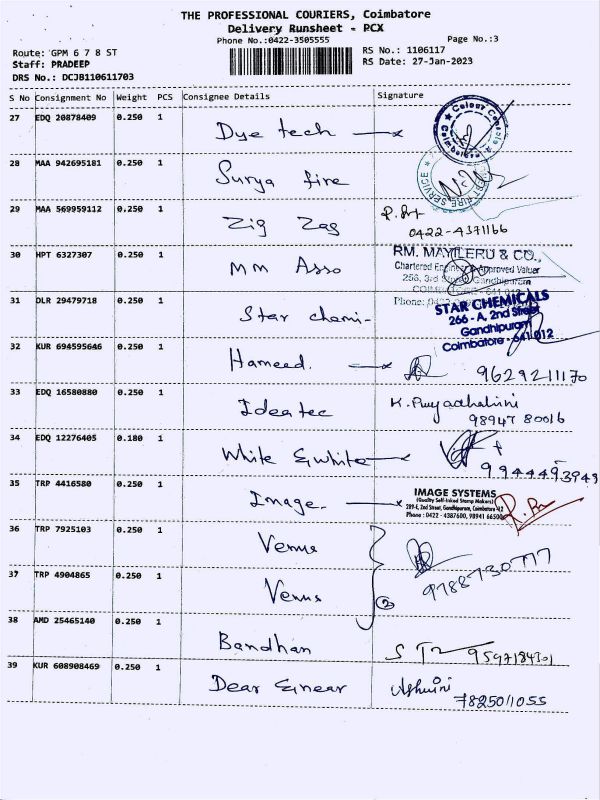 THE PROFESSIONAL COURIERS, Coimbatore
Delivery Runsheet - PCX
Phone No.:0422-3505555
Page No.:3
Route: GPM 6 7 8 ST
RS No.: 1106117
Staff: PRADEEP
RS Date: 27-Jan-2023
DRS No.: DCJB110611703
S No Consignment No Weight PCS Consignee Details Signature
27 EDQ 20878409 0.250 1 Dye tech
Colour
Coimbatore
28 MAA 942695181 0.250 1 Surya fire
FIRE SERVICE
29 MAA 569959112 0.250 1 Zig Zag
0422-4371166
30 HPT 6327307 0.250 1 MM Asso
RM. MAYILERU & CO.,
Chartered Engineer & Approved Valuer
Gandhipuram
Phone:
31 DLR 29479718 0.250 1 Star chemi-
STAR CHEMICALS
266 - A, 2nd Street
Gandhipuram
Coimbatore - 641 012
32 KUR 694595646 0.250 1 Hameed.
9629211170
33 EDQ 16580880 0.250 1 Ideatec
98947 80016
34 EDQ 12276405 0.180 1 White & white
9944493943
35 TRP 4416580 0.250 1 Image.
IMAGE SYSTEMS
(Quality Self-Inked Stamp Makers)
289-E, 2nd Street, Gandhipuram, Coimbatore-12
Phone : 0422 - 4387600, 98941 66500
36 TRP 7925103 0.250 1 Venus
9788730777
37 TRP 4904865 0.250 1 Venus
2
38 AMD 25465140 0.250 1 Bandhan
9597184301
39 KUR 608908469 0.250 1 Dear Einear
Ashwini
7825011055